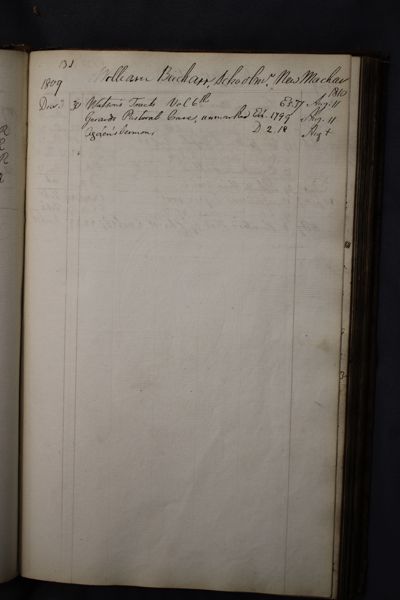 131
1809 William Buchan, Schoolmr. New Machar
1810
Decr. 30 Watson's Tracts Vol 6th E.6.77 Aug. 11
Gerard's Pastoral Care, unmarked Ed. 1799 Aug. 11
Ogden's Sermons D 2.18 Aug